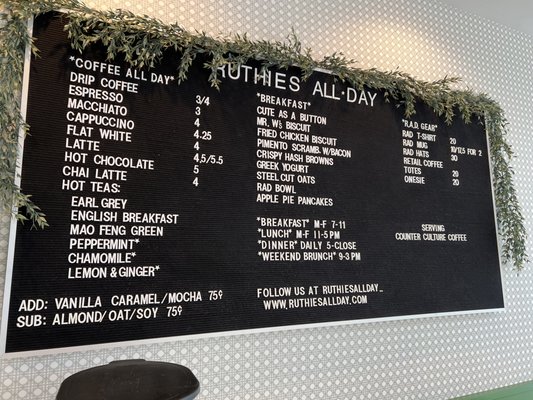 RUTHIES ALL-DAY
*COFFEE ALL DAY*
DRIP COFFEE
ESPRESSO 3/4
MACCHIATO 3
CAPPUCCINO 4
FLAT WHITE 4.25
LATTE 4
HOT CHOCOLATE 4,5/5.5
CHAI LATTE 5
HOT TEAS: 4
EARL GREY
ENGLISH BREAKFAST
MAO FENG GREEN
PEPPERMINT*
CHAMOMILE*
LEMON & GINGER*
ADD: VANILLA CARAMEL/MOCHA 75¢
SUB: ALMOND/OAT/SOY 75¢
*BREAKFAST*
CUTE AS A BUTTON
MR. W'S BISCUIT
FRIED CHICKEN BISCUIT
PIMENTO SCRMB. W/BACON
CRISPY HASH BROWNS
GREEK YOGURT
STEEL CUT OATS
RAD BOWL
APPLE PIE PANCAKES
*BREAKFAST* M-F 7-11
*LUNCH* M-F 11-5 PM
*DINNER* DAILY 5-CLOSE
*WEEKEND BRUNCH* 9-3 PM
FOLLOW US AT RUTHIESALLDAY_
WWW.RUTHIESALLDAY.COM
*R.A.D. GEAR*
RAD T-SHIRT 20
RAD MUG 10/17.5 FOR 2
RAD HATS 30
RETAIL COFFEE
TOTES 20
ONESIE 20
SERVING
COUNTER CULTURE COFFEE